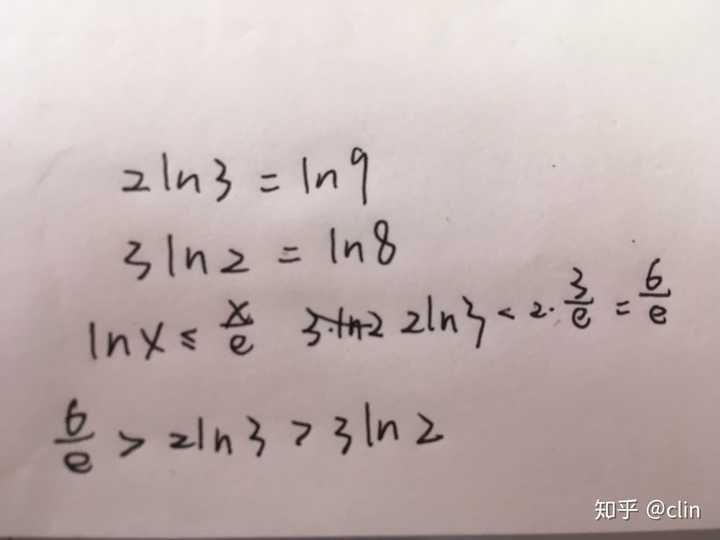 2ln3 = ln9
3ln2 = ln8
lnx ≤ x/e 3·ln2 2ln3 < 2·3/e = 6/e
6/e > 2ln3 > 3ln2
知乎 @clin